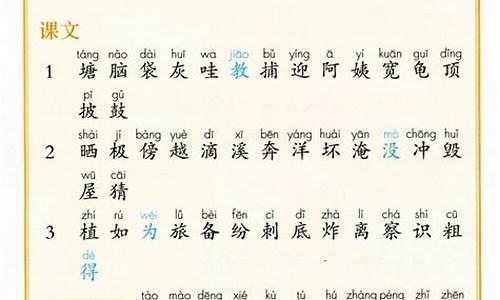 课文
táng nǎo dài huī wa jiāo bǔ yíng ā yí kuān guī dǐng
1 塘 脑 袋 灰 哇 教 捕 迎 阿 姨 宽 龟 顶
pī gǔ
披 鼓
shài jí bàng yuè dī xī bēn yáng huài yān mò chōng huǐ
2 晒 极 傍 越 滴 溪 奔 洋 坏 淹 没 冲 毁
wū cāi
屋 猜
zhí rú wéi lǚ bèi fēn cì dǐ zhà lí chá shí cū
3 植 如 为 旅 备 纷 刺 底 炸 离 察 识 粗
dé
得
tào mào dēng xié kù tú hú zhàng péng zhī zhēn